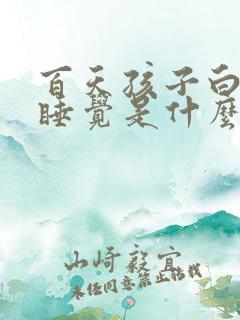 百天孩子白
睡覺是什麼
山崎毅宜
未经同意禁止转载